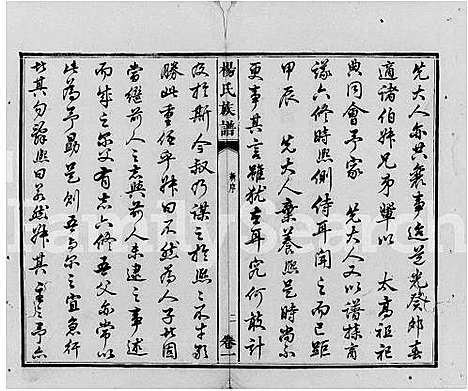 先大人亦共襄事迨光癸卯春
適諸伯叔兄弟輩以 太高祖祀
典同會予家 先大人又以譜採商
議六修時熙侧侍耳聞之而已距
甲辰 先大人棄養熙是時尚不
更事其言雖猶在耳究何敢計
楊氏族譜
新序
二
卷一
及於斯今叔乃謀之於熙之不才
勝此重任乎叔曰不然為人子者固
當繼前人之志與前人未逮之事述
而成之尔父有志六修吾父亦常以
此為予勗是則吾與尔之宜急行
者其勿辭熙曰若然叔其
FamilySearch